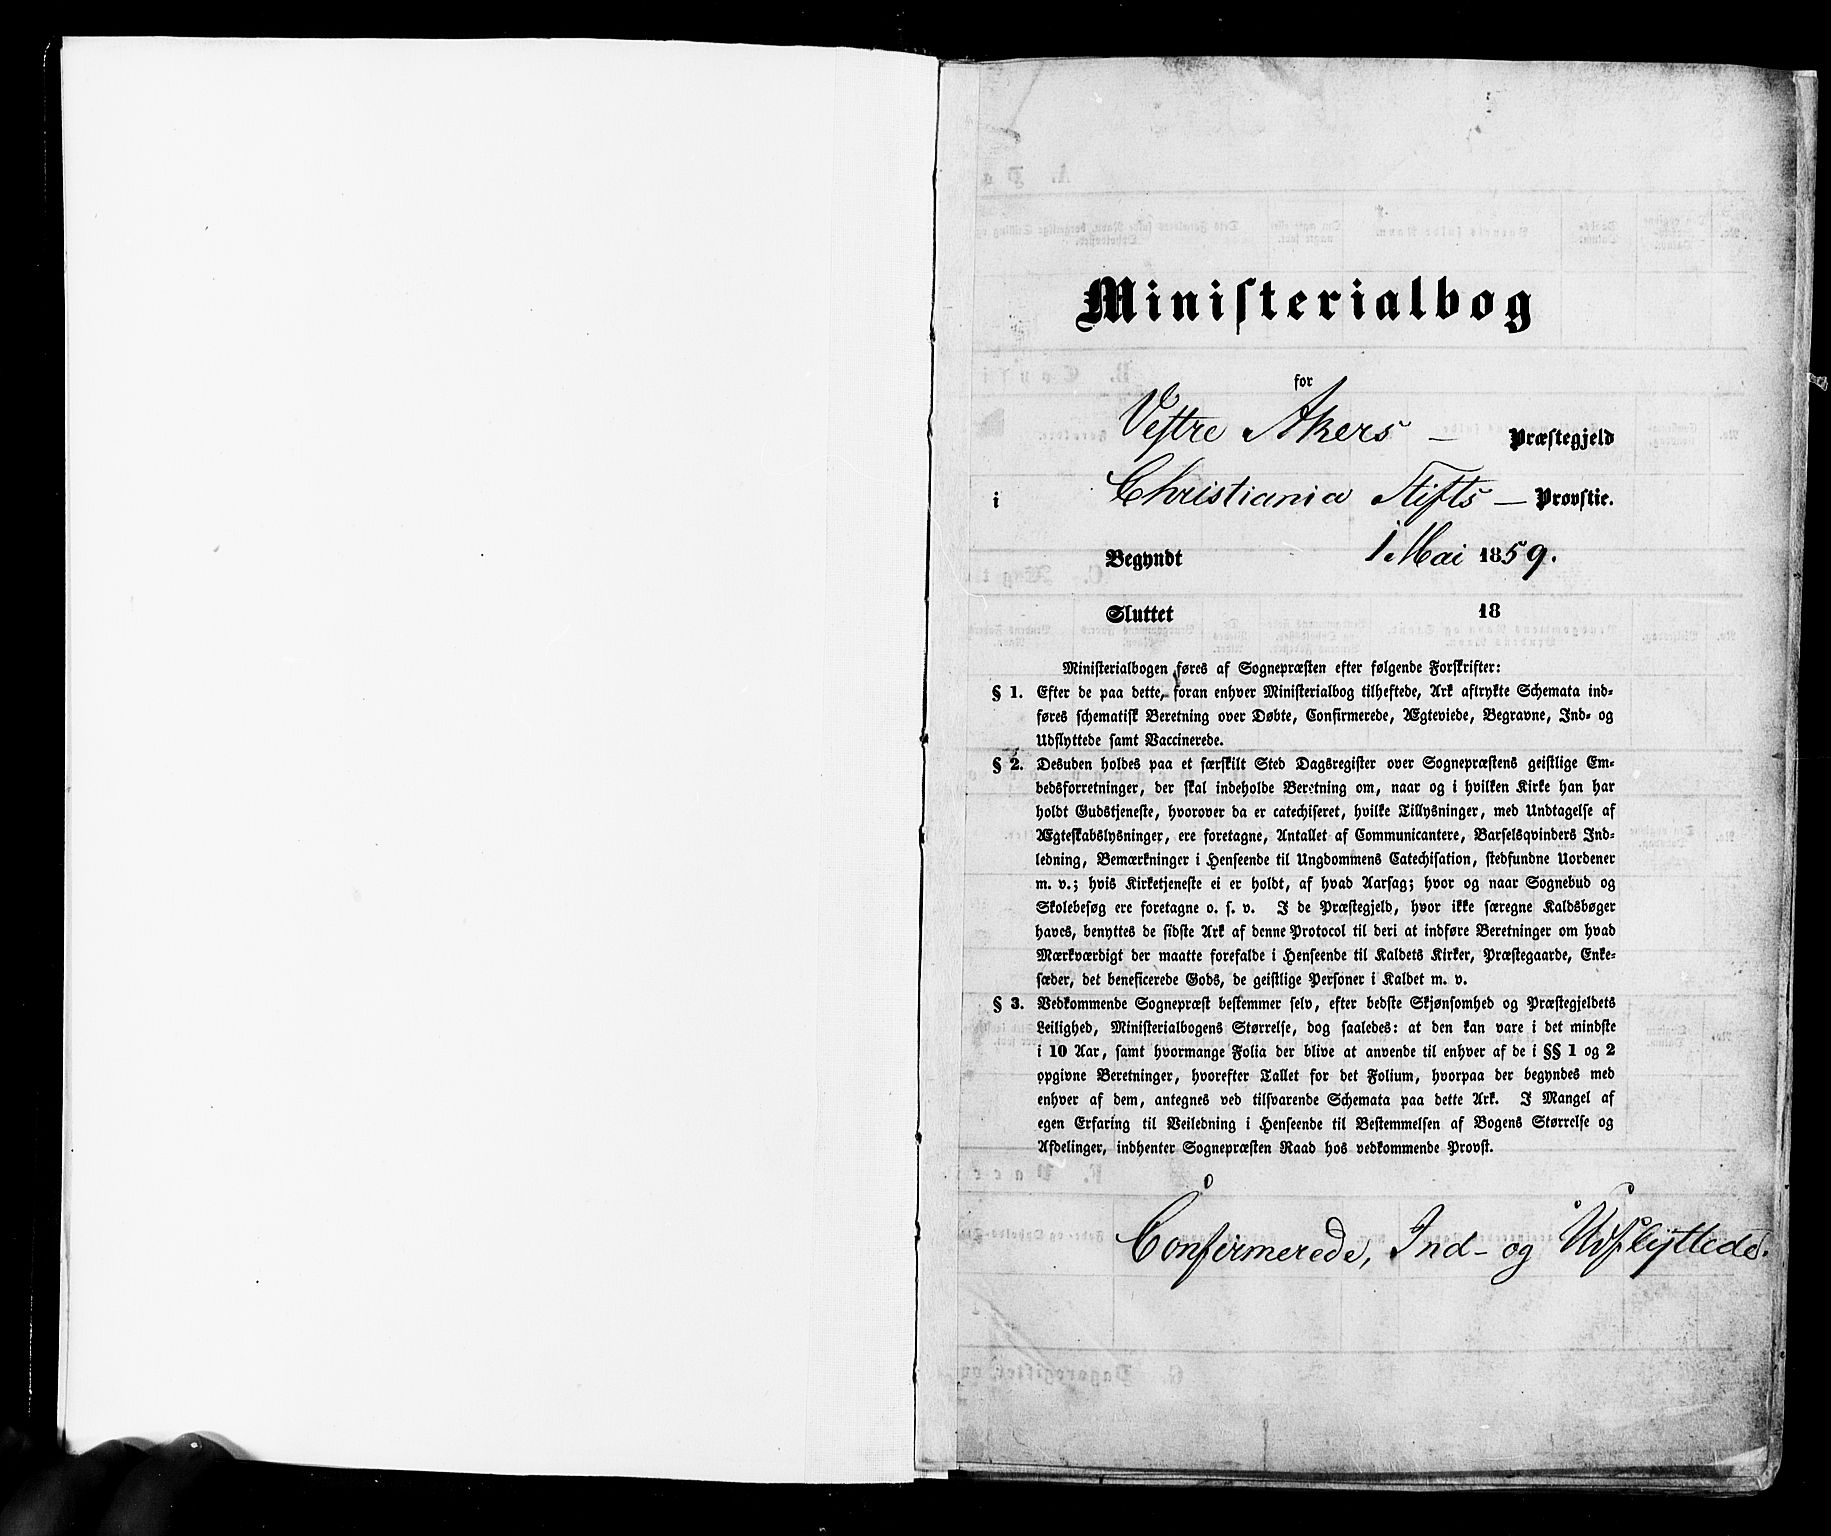 Ministerialbog
for
Vestre Akers – Præstegjeld
i Christiania Stifts – Provstie.
Begyndt 1 Mai 1859.
Sluttet 18
Ministerialbogen føres af Sognepræsten efter følgende Forskrifter:
§ 1. Efter de paa dette, foran enhver Ministerialbog tilheftede, Ark aftrykte Schemata ind-
føres schematisk Beretning over Døbte, Confirmerede, Ægteviede, Begravne, Ind- og
Udflyttede samt Vaccinerede.
§ 2. Desuden holdes paa et særskilt Sted Dagsregister over Sognepræstens geistlige Em-
bedsforretninger, der skal indeholde Beretning om, naar og i hvilken Kirke han har
holdt Gudstjeneste, hvorover da er catechiseret, hvilke Tillysninger, med Undtagelse af
Ægteskabslysninger, ere foretagne, Antallet af Communicantere, Barselsqvinders Ind-
ledning, Bemærkninger i Henseende til Ungdommens Catechisation, stedfundne Uordener
m. v.; hvis Kirketjeneste ei er holdt, af hvad Aarsag; hvor og naar Sognebud og
Skolebesøg ere foretagne o. s. v. I de Præstegjeld, hvor ikke særegne Kaldsbøger
haves, benyttes de sidste Ark af denne Protocol til deri at indføre Beretninger om hvad
Mærkværdigt der maatte forefalde i Henseende til Kaldets Kirker, Præstegaarde, Enke-
sæder, det beneficerede Gods, de geistlige Personer i Kaldet m. v.
§ 3. Vedkommende Sognepræst bestemmer selv, efter bedste Skjønsomhed og Præstegjeldets
Leilighed, Ministerialbogens Størrelse, dog saaledes: at den kan vare i det mindste
i 10 Aar, samt hvormange Folia der blive at anvende til enhver af de i §§ 1 og 2
opgivne Beretninger, hvorefter Tallet for det Folium, hvorpaa der begyndes med
enhver af dem, antegnes ved tilsvarende Schemata paa dette Ark. I Mangel af
egen Erfaring til Veiledning i Henseende til Bestemmelsen af Bogens Størrelse og
Afdelinger, indhenter Sognepræsten Raad hos vedkommende Provst.
Confirmerede, Ind- og Udflyttede.